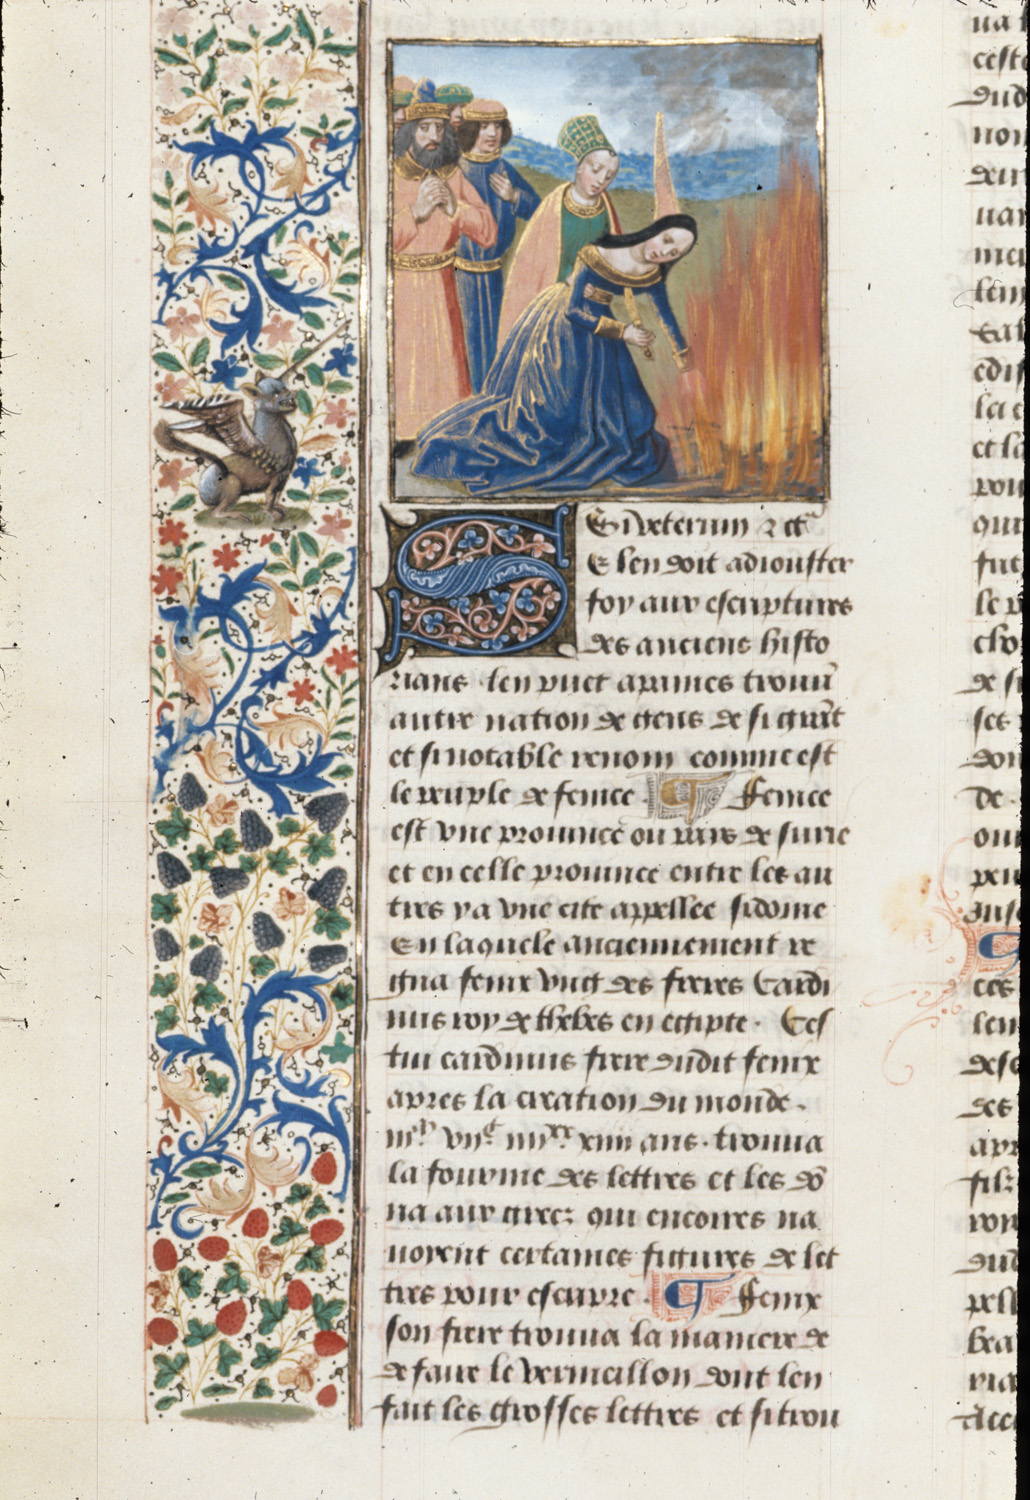 Si veterum et cetª
E len doit adiouster
foy aux escriptures
des anciens histo
rians len puet a paines trouũ
autre nation de gens de si grãt
et si notable renom comme est
le peuple de fenice . ¶ Fenice
est vne prouince ou pays de surie
et en celle prouince entre les au
tres y a vne cite appellee sidone
En laquele anciennement re
gna fenix vng des freres Cardi
nus roy de thebes en egipte . Ces
tui cardinus frere dudit fenix
apres la creation du monde .
iijᵐ vijᶜ iiijˣˣ xiiij ans . trouua
la fourme des lettres et les dõ
na aux grecz qui encores na
uoyent certaines figures de let
tres pour escripre . ¶ Fenix
son frere trouua la maniere de
de faire le vermeillon dont len
fait les grosses lettres et si trou
ceste
dud
non
de
et la
qui
fut
le p
cho
de si
ses
don
de
ces
len
des
apr
filz
roy
dud
pell
bea